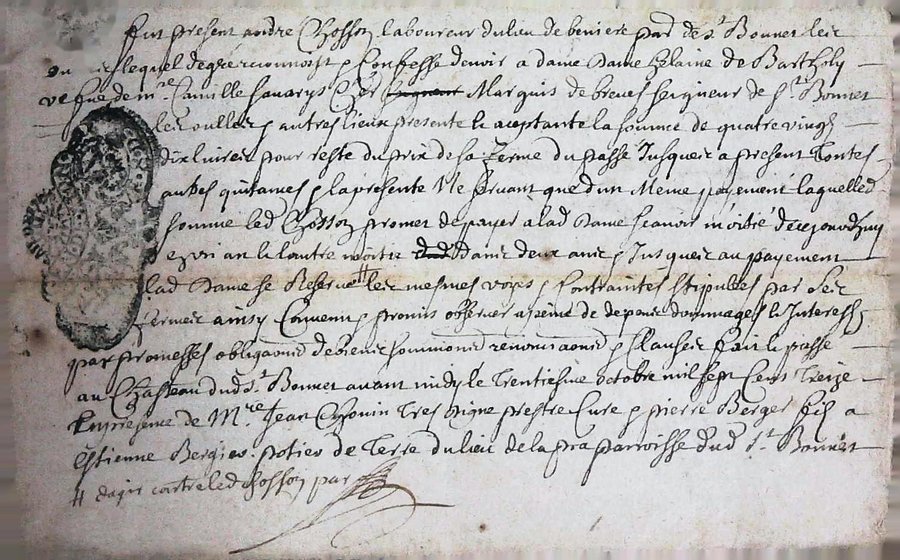 fut present andre Chosson laboureur du lieu de beniere par de st Bonnet les
lequel de gre reconnoist & Confesse devoir a dame Dame Elaine de Barthely
vefve de mre Camille Savarys Marquis de breves seigneur de st Bonnet
les oulles & autres lieux presente & aceptante la somme de quatre vingt
dix livres pour reste du prix de sa ferme du passe Jusques a present toutes
autres quitances & la presente ne servant que d'un meme payement laquelled
somme led Chosson promet de payer a lad Dame scavoir moitié d'icy
en un an & l'autre moitie dans deux ans & Jusques au payement
lad Dame se Reserve # les mesmes voyes & Contraintes stipulées par les
fermes ainsy Convenu & promis observer a peine de depens dommages & Interests
par promesses obligaons de biens soumissions renonciaons & clauses fait & passé
au Chasteau dud st Bonnet avant midy le trentiesme octobre mil sept Cent treize
En presence de Mre Jean Chonin Tres digne prestre Cure & pierre Berger fils a
Estienne Bergier potier de Terre du lieu de la pra parroisse dud st Bonnet
# d'agir contre led Chosson par